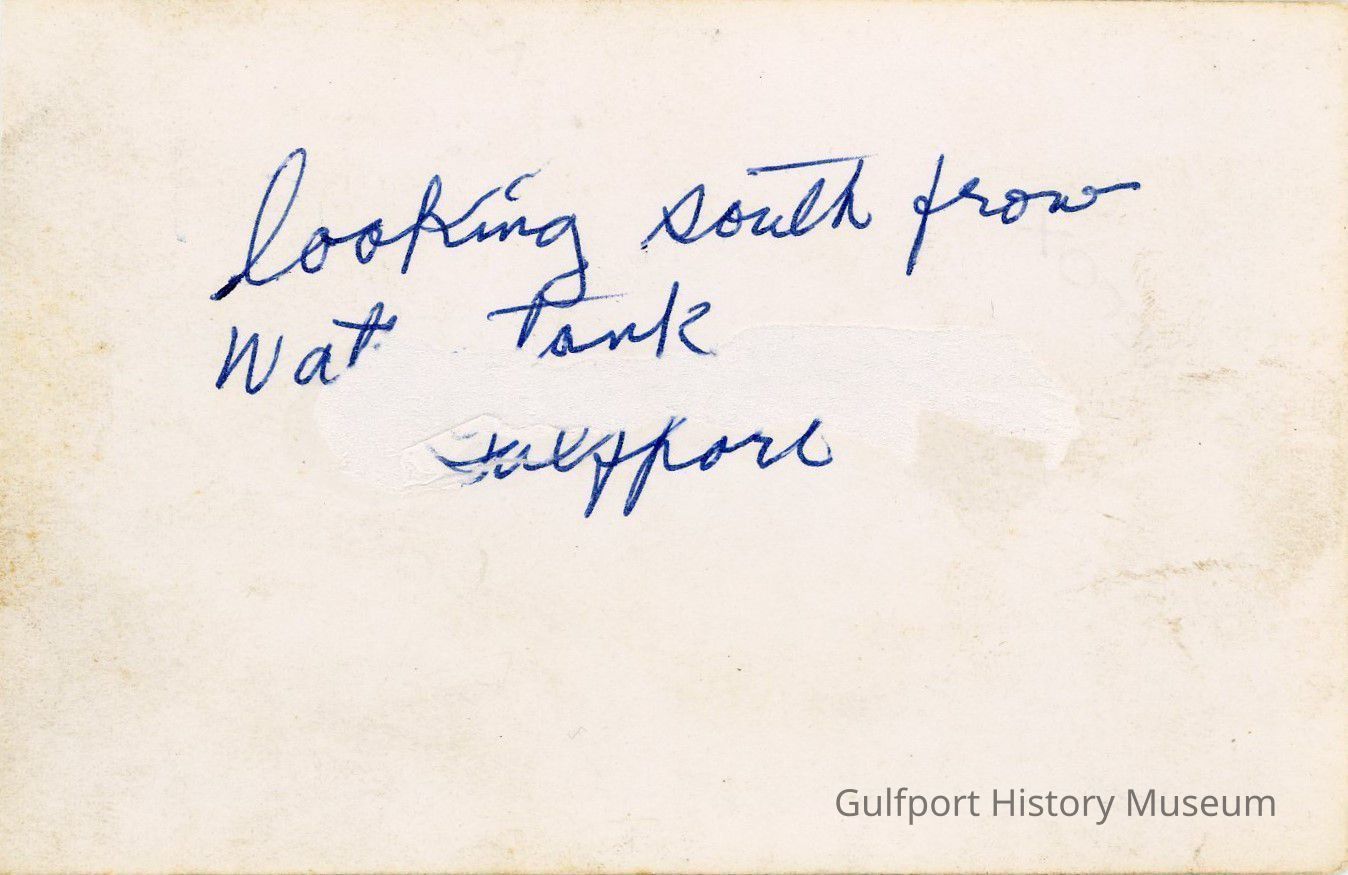 looking south from
Wat Tank
Gulfport
Gulfport History Museum